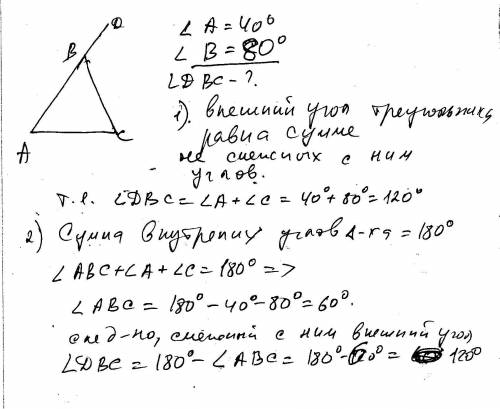 D
B
A
C
∠ A = 40°
∠ B = 80°
∠DBC - ?
1). Внешний угол треугольника
равна сумме
не смежных с ним
углов.
т.е. ∠DBC = ∠A + ∠C = 40° + 80° = 120°
2) Сумма внутрених углов Δ-ка = 180°
∠ABC + ∠A + ∠C = 180° =>
∠ABC = 180° - 40° - 80° = 60°.
след-но, смежный с ним внешний угол
∠DBC = 180° - ∠ABC = 180° - 60° = 120°